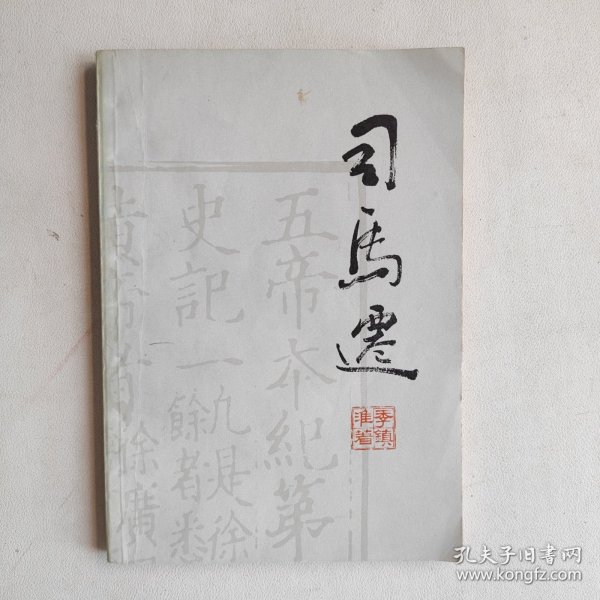 司马遷
季镇淮著
五帝本紀第
史記一
凡是徐
餘者悉
徐廣
孔夫子旧书网
www.kongfz.com